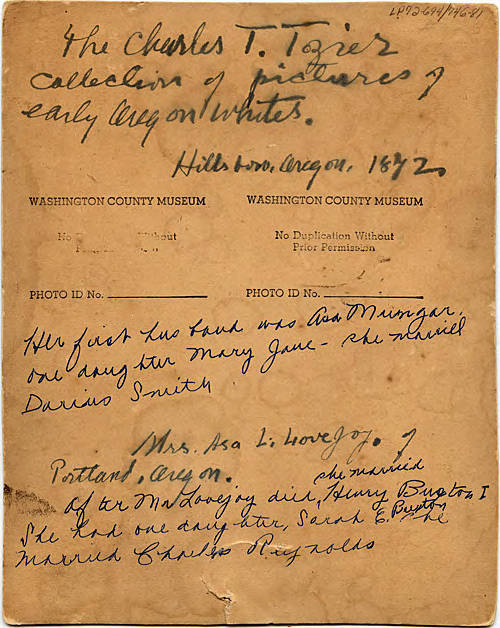 LP72-694/746-81
The Charles T. Tozier
collection of pictures of
early Oregon Whites.
Hillsboro, Oregon, 1872
WASHINGTON COUNTY MUSEUM
WASHINGTON COUNTY MUSEUM
No Without
No Duplication Without
Prior Permission
PHOTO ID No.
PHOTO ID No.
Her first husband was Asa Mungar.
one daughter Mary Jane - she married
Darius Smith
Mrs. Asa L. Lovejoy. of
Portland, Oregon.
she married
After Mr Lovejoy died, Henry Buxton I
She had one daughter, Sarah E. Buxton She
married Charles Reynolds